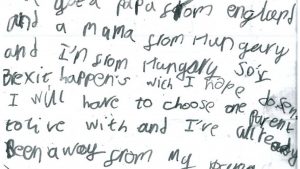 papa from england
and a mama from Hungeary
and I'm from Hungary so if
Brexit happen's wich I hope dosen
I will have to choose one parent
to live with and I've allready
Been away from my